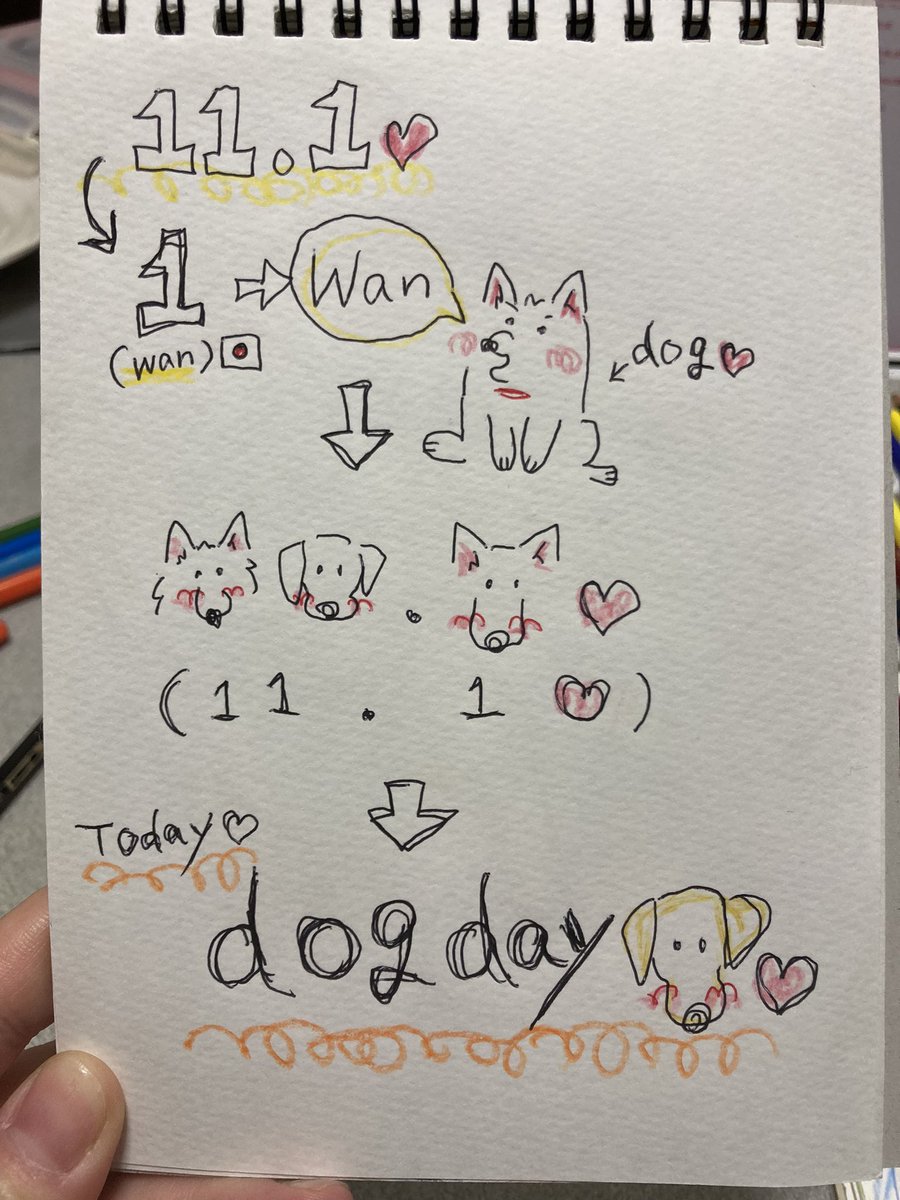 11.1
1 Wan
(wan)
dog
(11.1)
Today
dog day